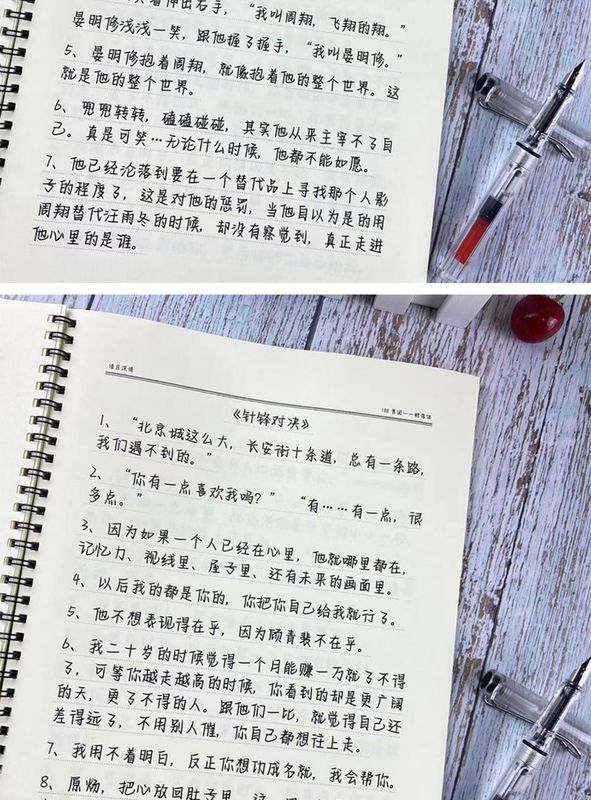 伸出右手，“我叫周翔，飞翔的翔。”
晏明修浅浅一笑，跟他握了握手，“我叫晏明修。”
5、晏明修抱着周翔，就像抱着他的整个世界。这
就是他的整个世界。
6、兜兜转转，磕磕碰碰，其实他从来主宰不了自
己。真是可笑…无论什么时候，他都不能如愿。
7、他已经沦落到要在一个替代品上寻找那个人影
子的程度了，这是对他的惩罚，当他自以为是的用
周翔替代汪雨冬的时候，却没有察觉到，真正走进
他心里的是谁。
《针锋对决》
1、“北京城这么大，长安街十条道，总有一条路，
我们遇不到的。”
2、“你有一点喜欢我吗？”“有……有一点，很
多点。”
3、因为如果一个人已经在心里，他就哪里都在，
记忆力、视线里、屋子里、还有未来的画面里。
4、以后我的都是你的，你把你自己给我就行了。
5、他不想表现得在乎，因为顾青裴不在乎。
6、我二十岁的时候觉得一个月能赚一万就了不得
了，可等你越走越高的时候，你看到的却是更广阔
的天，更了不得的人。跟他们一比，就觉得自己还
差得远了，不用别人催，你自己都想往上走。
7、我用不着明白，反正你想功成名就，我会帮你。
8、原炀，把心放回肚子里